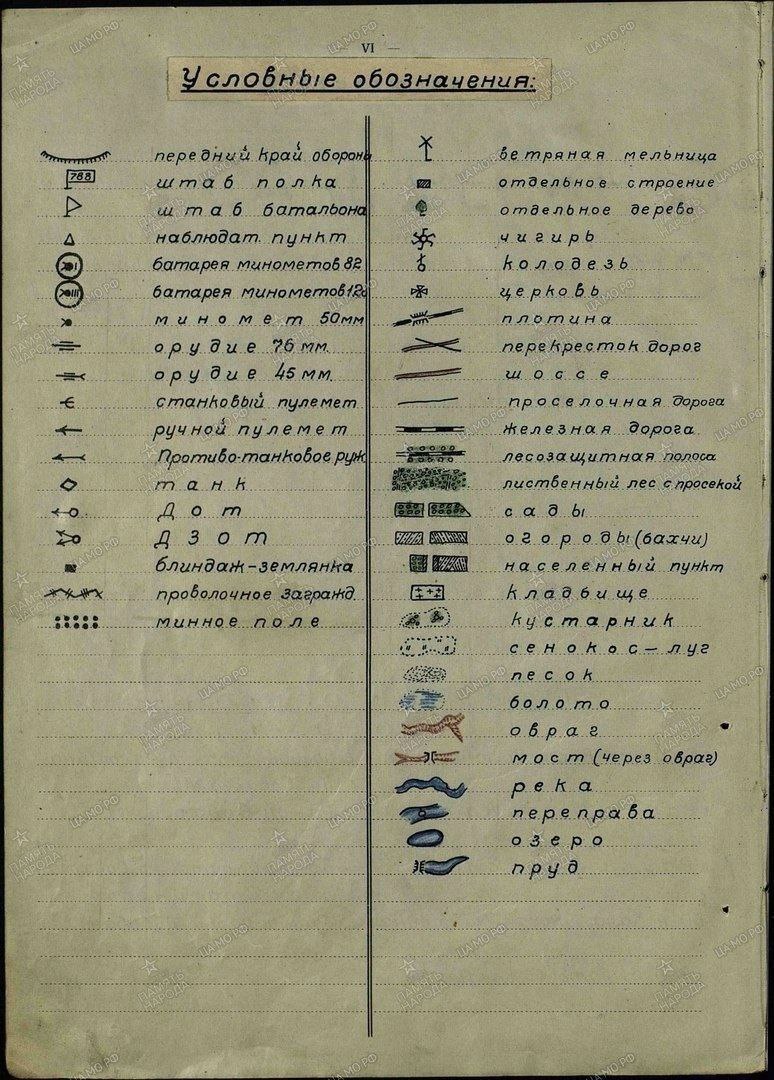 VI
Условные обозначения:
передний край оборон
788
штаб полка
штаб батальона
наблюдат. пункт
батарея минометов 82
батарея минометов 120
миномет 50мм
орудие 76 мм.
орудие 45 мм.
станковый пулемет
ручной пулемет
Противо-танковое руж
танк
Дот
ДЗот
блиндаж-землянка
проволочное загражд.
минное поле
ветряная мельница
отдельное строение
отдельное дерево
чигирь
колодезь
церковь
плотина
перекресток дорог
шоссе
проселочная дорога
железная дорога
лесозащитная полоса
лиственный лес с просекой
сады
огороды (бахчи)
населенный пункт
кладбище
кустарник
сенокос-луг
песок
болото
овраг
мост (через овраг)
река
переправа
озеро
пруд
ПАМЯТЬ НАРОДА
ЦАМО.РФ